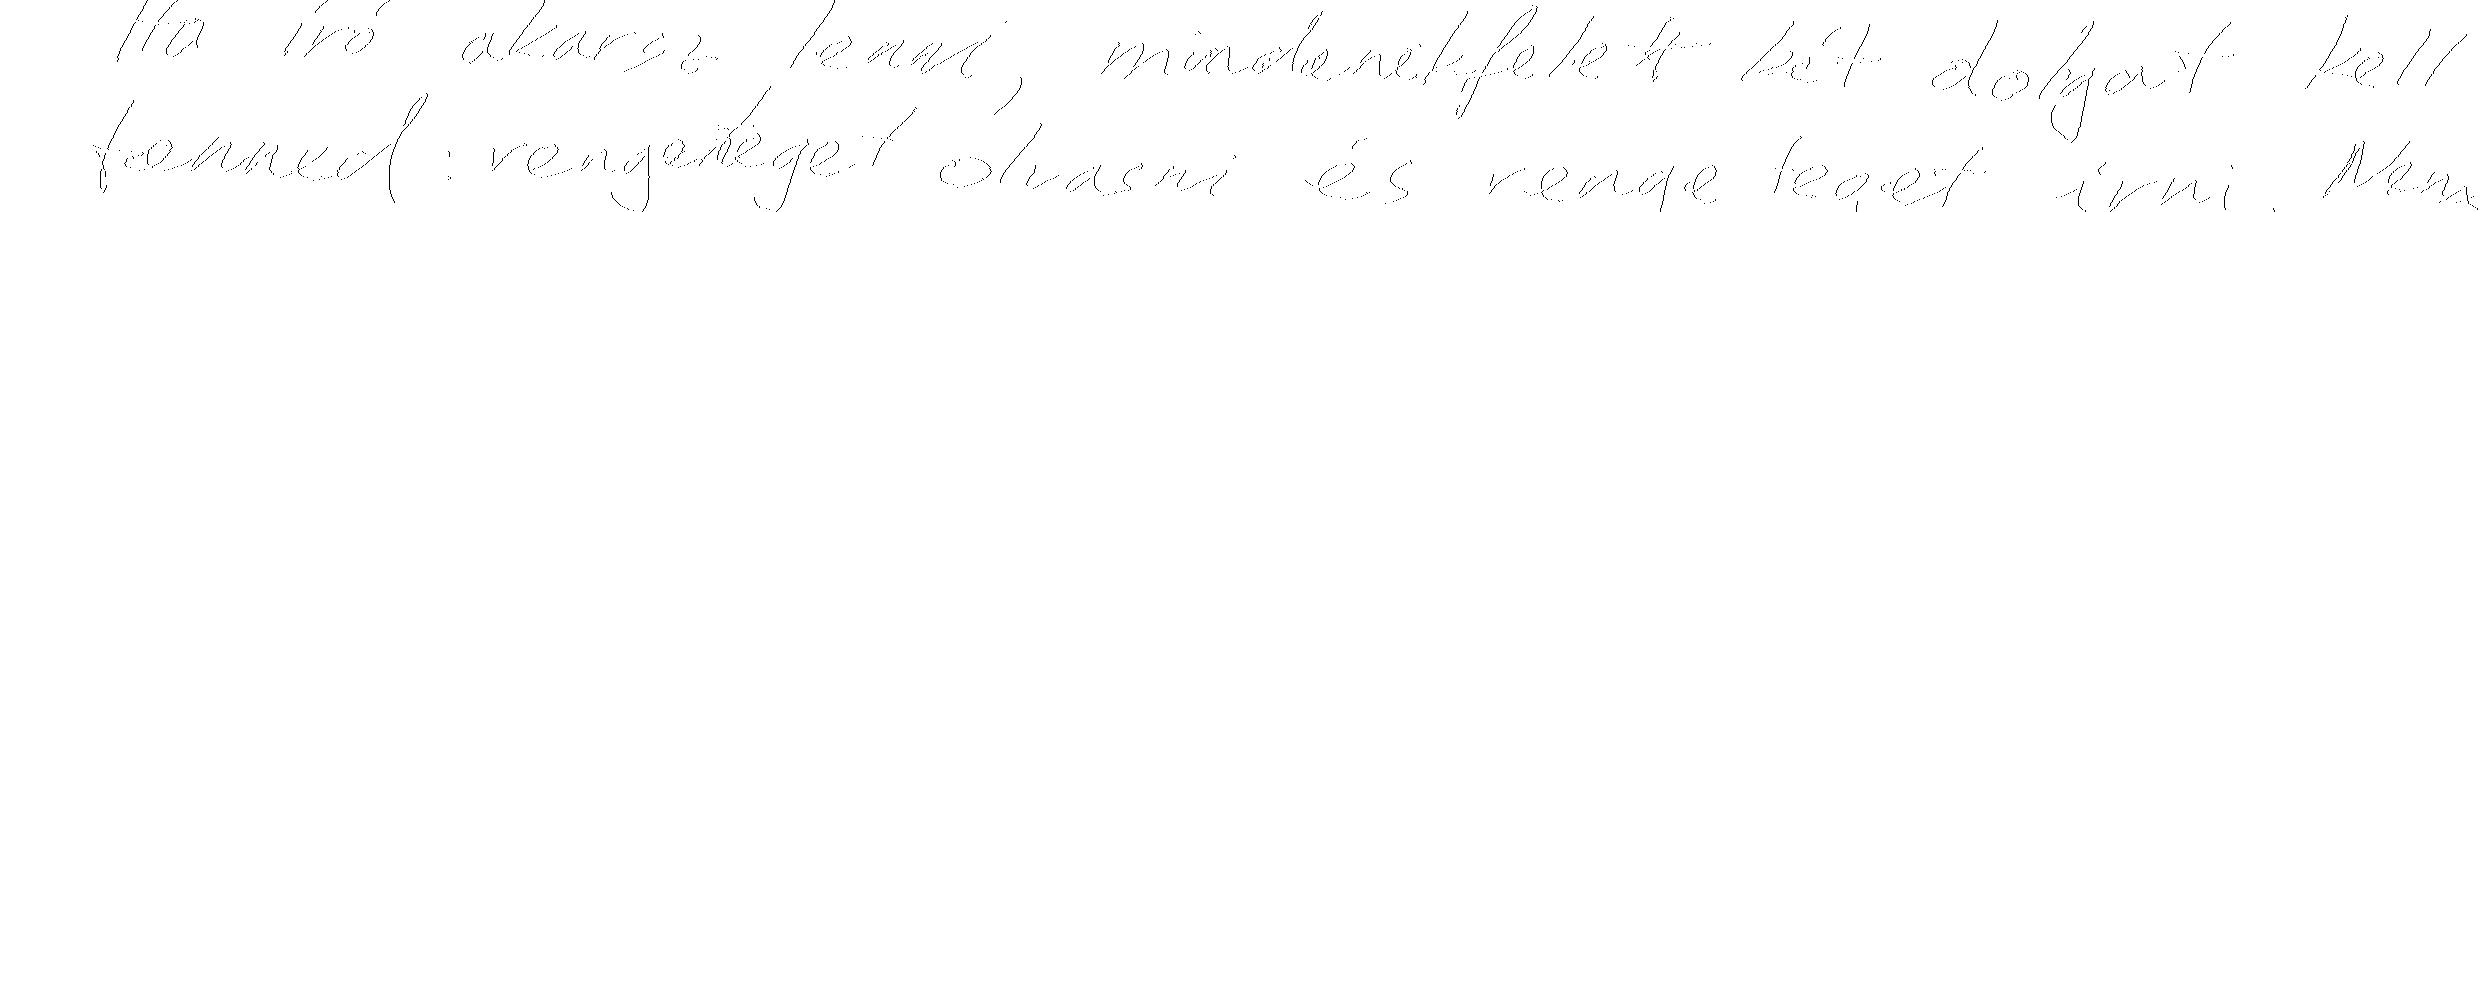 Ha író akarsz lenni, mindenekfelett két dolgot kell
tenned: rengeteget olvasni és rengeteget írni. Nem